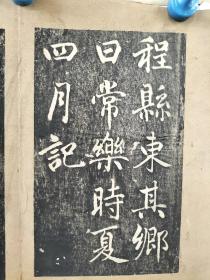 程縣東其鄉
日常樂時夏
四月記